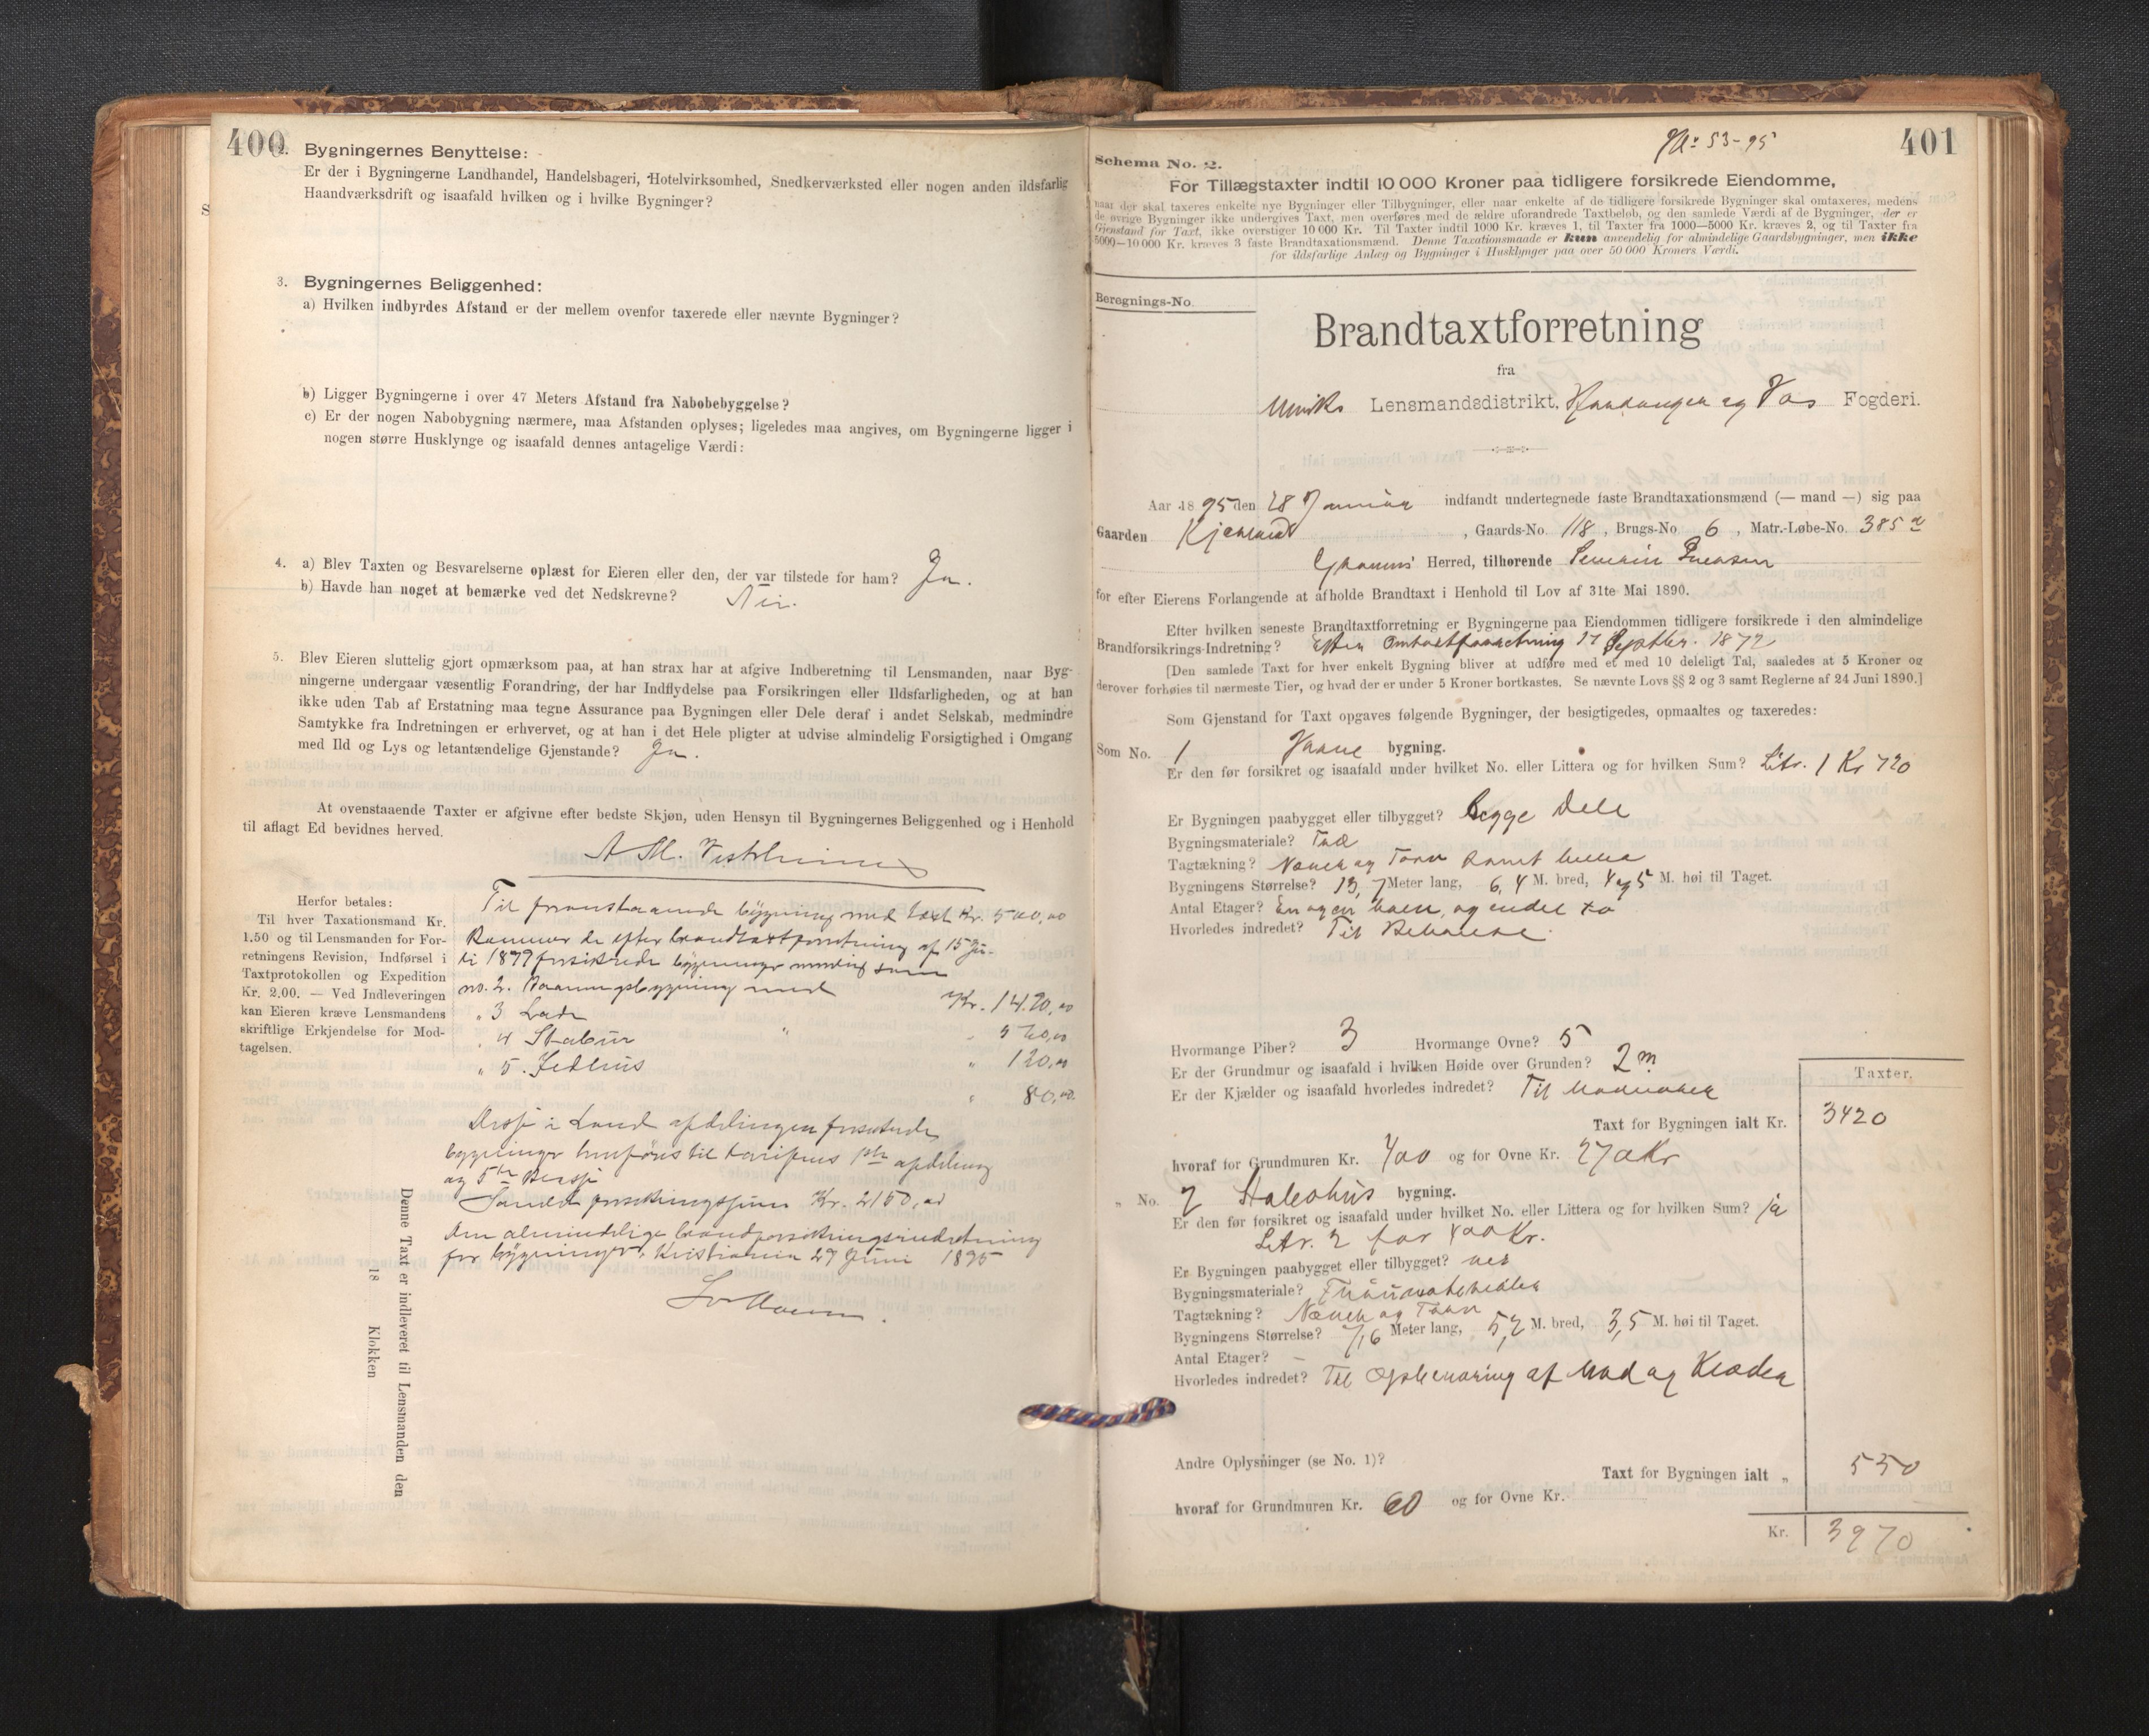 400
2. Bygningernes Benyttelse:
Er der i Bygningerne Landhandel, Handelsbageri, Hotelvirksomhed, Snedkerværksted eller nogen anden ildsfarlig
Haandværksdrift og isaafald hvilken og i hvilke Bygninger?
3. Bygningernes Beliggenhed:
a) Hvilken indbyrdes Afstand er der mellem ovenfor taxerede eller nævnte Bygninger?
b) Ligger Bygningerne i over 47 Meters Afstand fra Nabobebyggelse?
c) Er der nogen Nabobygning nærmere, maa Afstanden oplyses; ligeledes maa angives, om Bygningerne ligger i
nogen større Husklynge og isaafald dennes antagelige Værdi:
4. a) Blev Taxten og Besvarelserne oplæst for Eieren eller den, der var tilstede for ham? Ja.
b) Havde han noget at bemærke ved det Nedskrevne? Nei.
5. Blev Eieren sluttelig gjort opmærksom paa, at han strax har at afgive Indberetning til Lensmanden, naar Byg-
ningerne undergaar væsentlig Forandring, der har Indflydelse paa Forsikringen eller Ildsfarligheden, og at han
ikke uden Tab af Erstatning maa tegne Assurance paa Bygningen eller Dele deraf i andet Selskab, medmindre
Samtykke fra Indretningen er erhvervet, og at han i det Hele pligter at udvise almindelig Forsigtighed i Omgang
med Ild og Lys og letantændelige Gjenstande? Ja.
At ovenstaaende Taxter er afgivne efter bedste Skjøn, uden Hensyn til Bygningernes Beliggenhed og i Henhold
til aflagt Ed bevidnes herved.
Herfor betales:
Til hver Taxationsmand Kr.
1.50 og til Lensmanden for For-
retningens Revision, Indførsel i
Taxtprotokollen og Expedition
Kr. 2.00. — Ved Indleveringen
kan Eieren kræve Lensmandens
skriftlige Erkjendelse for Mod-
tagelsen.
Til foranstaaende bygning med taxt Kr. 500,00
kommer de efter brandtaxtforretning af 15 Ju-
li 1879 forsikrede bygninger nemlig som
no. 2. Vaaningsbygning med Kr. 1420,00
" 3 Lade
" 4 Stabur " 120,00
" 5. Ildhus " 80,00
Disse i Land afdelingen forsikrede
bygninger henføres til tarifens 1ste afdeling
og 5te klasse
Samlet forsikringssum Kr. 2150,00
Den almindelige brandforsikringsindretning
for bygninger, Kristiania 29 Juni 1895
Denne Taxt er indleveret til Lensmanden den
18 Klokken
401
53-95
Schema No. 2.
For Tillægstaxter indtil 10 000 Kroner paa tidligere forsikrede Eiendomme,
naar der skal taxeres enkelte nye Bygninger eller Tilbygninger, eller naar enkelte af de tidligere forsikrede Bygninger skal omtaxeres, medens
de øvrige Bygninger ikke undergives Taxt, men overføres med de ældre uforandrede Taxtbeløb, og den samlede Værdi af de Bygninger, der er
Gjenstand for Taxt, ikke overstiger 10 000 Kr. Til Taxter indtil 1000 Kr. kræves 1, til Taxter fra 1000—5000 Kr. kræves 2, og til Taxter fra
5000—10 000 Kr. kræves 3 faste Brandtaxationsmænd. Denne Taxationsmaade er kun anvendelig for almindelige Gaardsbygninger, men ikke
for ildsfarlige Anlæg og Bygninger i Husklynger paa over 50 000 Kroners Værdi.
Beregnings-No.
Brandtaxtforretning
fra
Ulviks Lensmandsdistrikt, Hardanger og Vos Fogderi.
Aar 1895 den 28 Januar indfandt undertegnede faste Brandtaxationsmænd (— mand —) sig paa
Gaarden , Gaards-No. 118, Brugs-No 6, Matr.-Løbe-No. 385 a
Herred, tilhørende Severin
for efter Eierens Forlangende at afholde Brandtaxt i Henhold til Lov af 31te Mai 1890.
Efter hvilken seneste Brandtaxtforretning er Bygningerne paa Eiendommen tidligere forsikrede i den almindelige
Brandforsikrings-Indretning? Efter Omtaxtforretning 17 Septbr. 1872
[Den samlede Taxt for hver enkelt Bygning bliver at udføre med et med 10 deleligt Tal, saaledes at 5 Kroner og
derover forhøies til nærmeste Tier, og hvad der er under 5 Kroner bortkastes. Se nævnte Lovs §§ 2 og 3 samt Reglerne af 24 Juni 1890.]
Som Gjenstand for Taxt opgaves følgende Bygninger, der besigtigedes, opmaaltes og taxeredes:
Som No. 1 Vaane bygning.
Er den før forsikret og isaafald under hvilket No. eller Littera og for hvilken Sum? Litr. 1 Kr 720
Er Bygningen paabygget eller tilbygget? begge Dele
Bygningsmateriale? Træ
Tagtækning? Næver og Torv samt heller
Bygningens Størrelse? 13,7 Meter lang, 6,4 M. bred, 4 og 5 M. høi til Taget.
Antal Etager? En og en halv, og endel to
Hvorledes indredet? Til Beboelse.
Hvormange Piber? 3 Hvormange Ovne? 5
Er der Grundmur og isaafald i hvilken Høide over Grunden? 2 m
Er der Kjælder og isaafald hvorledes indredet? Til Madvarer
Taxter.
Taxt for Bygningen ialt Kr. 3420
hvoraf for Grundmuren Kr. 400 og for Ovne Kr. 270 Kr
" No. 2 Stabohus bygning.
Er den før forsikret og isaafald under hvilket No. eller Littera og for hvilken Sum? ja
Litr. 2 for 400 Kr.
Er Bygningen paabygget eller tilbygget? nei
Bygningsmateriale? Trämaterialer
Tagtækning? Næver og Torv
Bygningens Størrelse? 7,6 Meter lang, 5,2 M. bred, 3,5 M. høi til Taget.
Antal Etager? –
Hvorledes indredet? Til Opbevaring af Mad og Klæder
Andre Oplysninger (se No. 1)?
Taxt for Bygningen ialt " 550
hvoraf for Grundmuren Kr. 60 og for Ovne Kr.
Kr. 3970